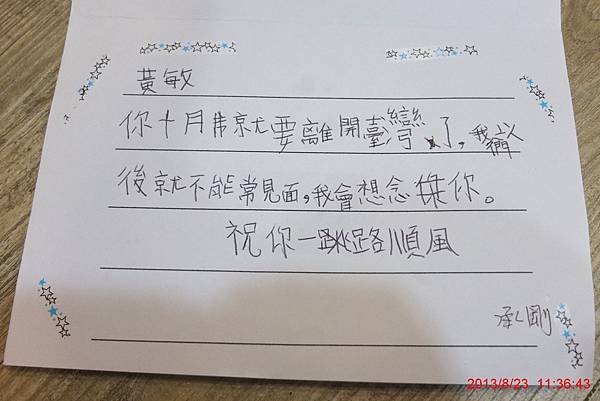 黃敏
你十月就要離開臺灣了,我以
後就不能常見面,我會想念你。
祝你一跳路順風
承剛
2013/8/23 11:36:43